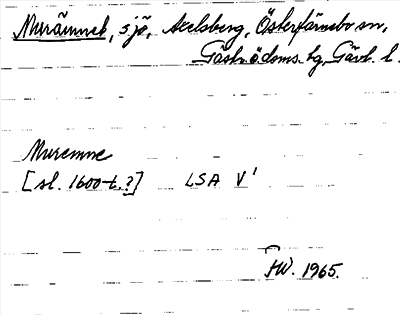 Murämnet, sjö, Axelsberg, Österfärnebo sn,
Gästr. ö. doms. hg, Gävl. l.
Muremne
[sl. 1600-t.?] LSA V¹
FW. 1965.